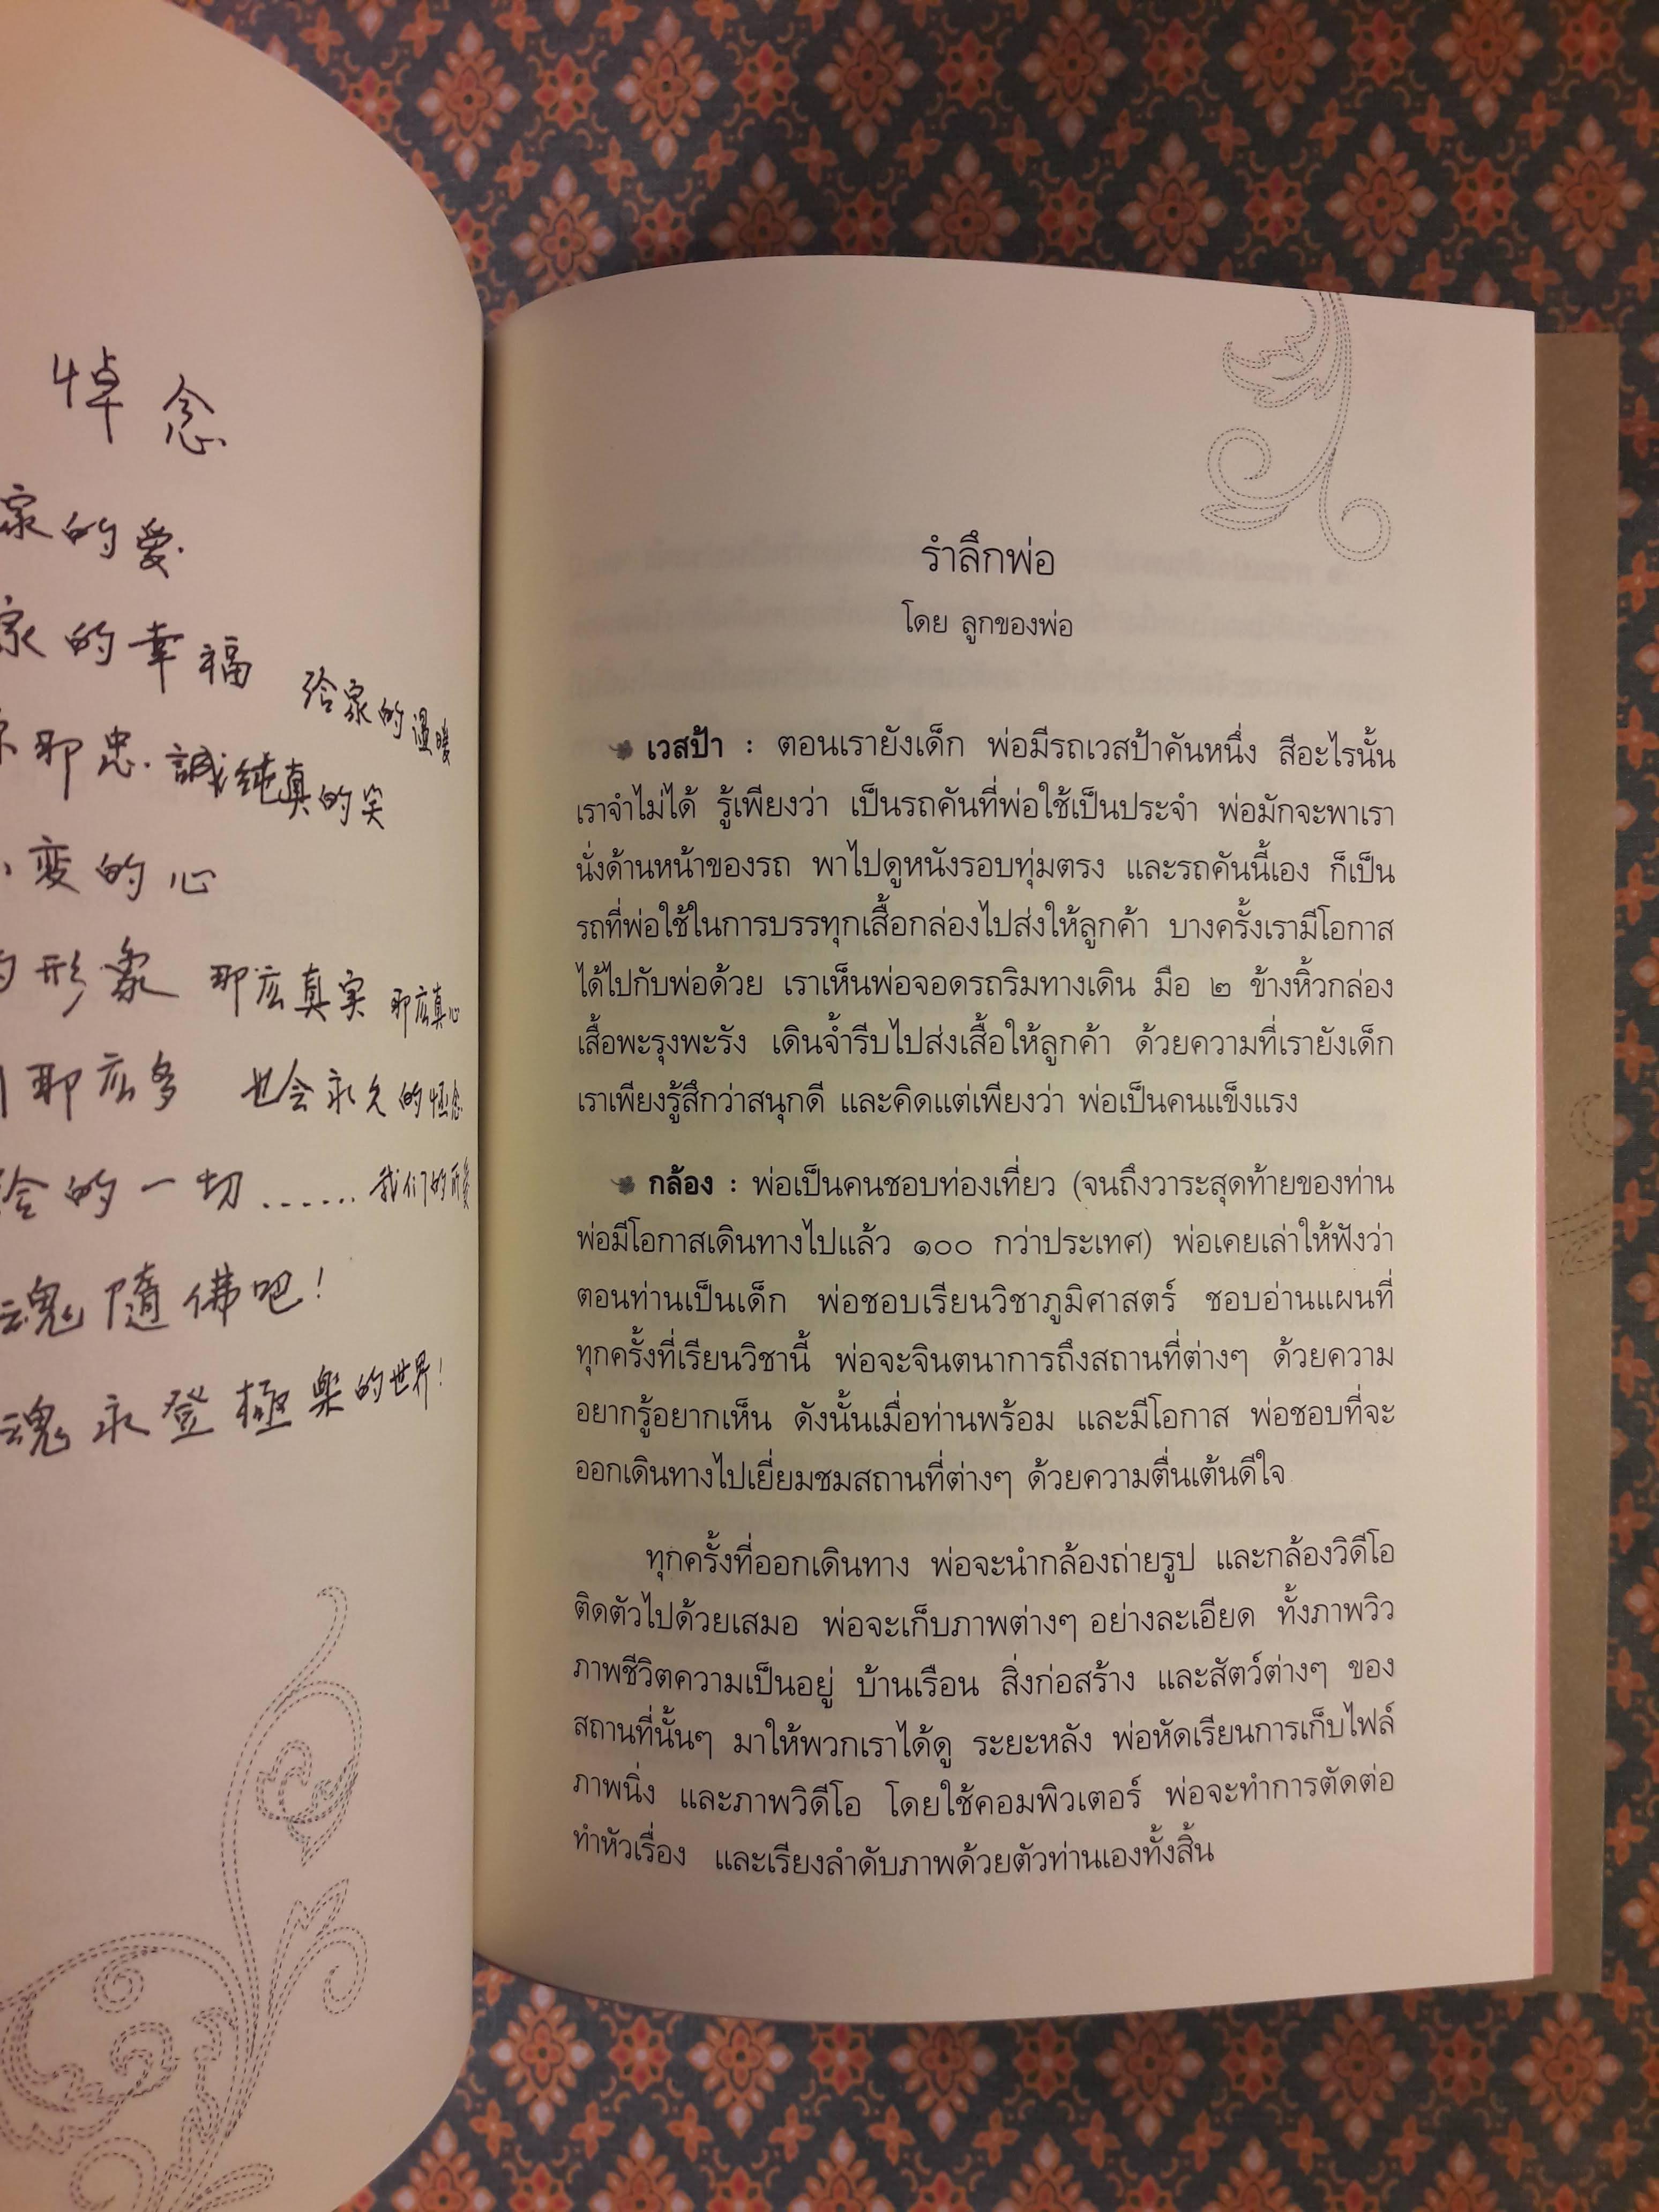 悼念
家的爱.
家的幸福 给家的温暖
那忠.誠純真的笑
变的心
形象 那広真实 那広真心
那広多 也会永久的怀念
给的一切...... 我们的
魂隨佛吧!
魂永登極樂的世界!
รำลึกพ่อ
โดย ลูกของพ่อ
เวสป้า : ตอนเรายังเด็ก พ่อมีรถเวสป้าคันหนึ่ง สีอะไรนั้น
เราจำไม่ได้ รู้เพียงว่า เป็นรถคันที่พ่อใช้เป็นประจำ พ่อมักจะพาเรา
นั่งด้านหน้าของรถ พาไปดูหนังรอบทุ่มตรง และรถคันนี้เอง ก็เป็น
รถที่พ่อใช้ในการบรรทุกเสื้อกล่องไปส่งให้ลูกค้า บางครั้งเรามีโอกาส
ได้ไปกับพ่อด้วย เราเห็นพ่อจอดรถริมทางเดิน มือ ๒ ข้างหิ้วกล่อง
เสื้อพะรุงพะรัง เดินจ้ำรีบไปส่งเสื้อให้ลูกค้า ด้วยความที่เรายังเด็ก
เราเพียงรู้สึกว่าสนุกดี และคิดแต่เพียงว่า พ่อเป็นคนแข็งแรง
กล้อง : พ่อเป็นคนชอบท่องเที่ยว (จนถึงวาระสุดท้ายของท่าน
พ่อมีโอกาสเดินทางไปแล้ว ๑๐๐ กว่าประเทศ) พ่อเคยเล่าให้ฟังว่า
ตอนท่านเป็นเด็ก พ่อชอบเรียนวิชาภูมิศาสตร์ ชอบอ่านแผนที่
ทุกครั้งที่เรียนวิชานี้ พ่อจะจินตนาการถึงสถานที่ต่างๆ ด้วยความ
อยากรู้อยากเห็น ดังนั้นเมื่อท่านพร้อม และมีโอกาส พ่อชอบที่จะ
ออกเดินทางไปเยี่ยมชมสถานที่ต่างๆ ด้วยความตื่นเต้นดีใจ
ทุกครั้งที่ออกเดินทาง พ่อจะนำกล้องถ่ายรูป และกล้องวิดีโอ
ติดตัวไปด้วยเสมอ พ่อจะเก็บภาพต่างๆ อย่างละเอียด ทั้งภาพวิว
ภาพชีวิตความเป็นอยู่ บ้านเรือน สิ่งก่อสร้าง และสัตว์ต่างๆ ของ
สถานที่นั้นๆ มาให้พวกเราได้ดู ระยะหลัง พ่อหัดเรียนการเก็บไฟล์
ภาพนิ่ง และภาพวิดีโอ โดยใช้คอมพิวเตอร์ พ่อจะทำการตัดต่อ
ทำหัวเรื่อง และเรียงลำดับภาพด้วยตัวท่านเองทั้งสิ้น